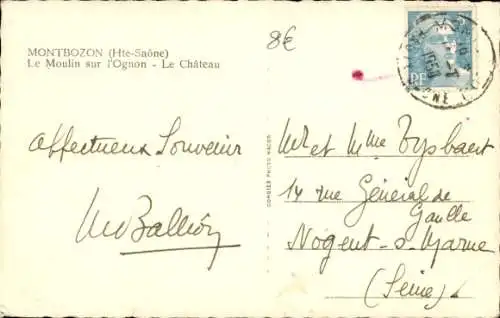 MONTBOZON (Hte-Saône)
Le Moulin sur l'Ognon - Le Château
8€
RF
Affectueux Souvenir
Mr et Mme Tysbaert
14 rue Général de
Gaulle
Nogent-s-Marne
(Seine)